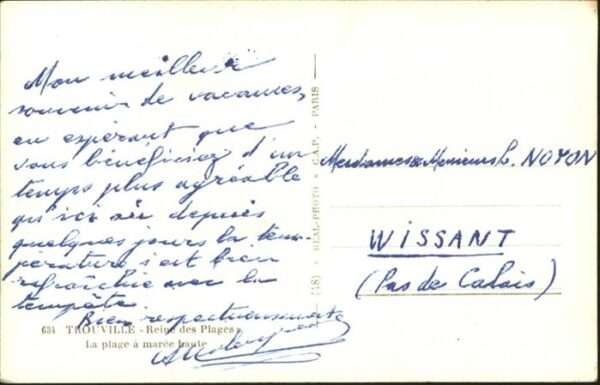 Mon meilleur
souvenir de vacances,
en espérant que
vous bénéficiez d'un
temps plus agréable
qu'ici où depuis
quelques jours la tem-
pérature s'est bien
rafraîchie avec la
tempête.
Bien respectueusement
634 TROUVILLE - Reine des Plages -
La plage à marée haute
(48) REAL-PHOTO C.A.P. - PARIS
Mesdames & Monsieur L. NOYON
WISSANT
(Pas de Calais)